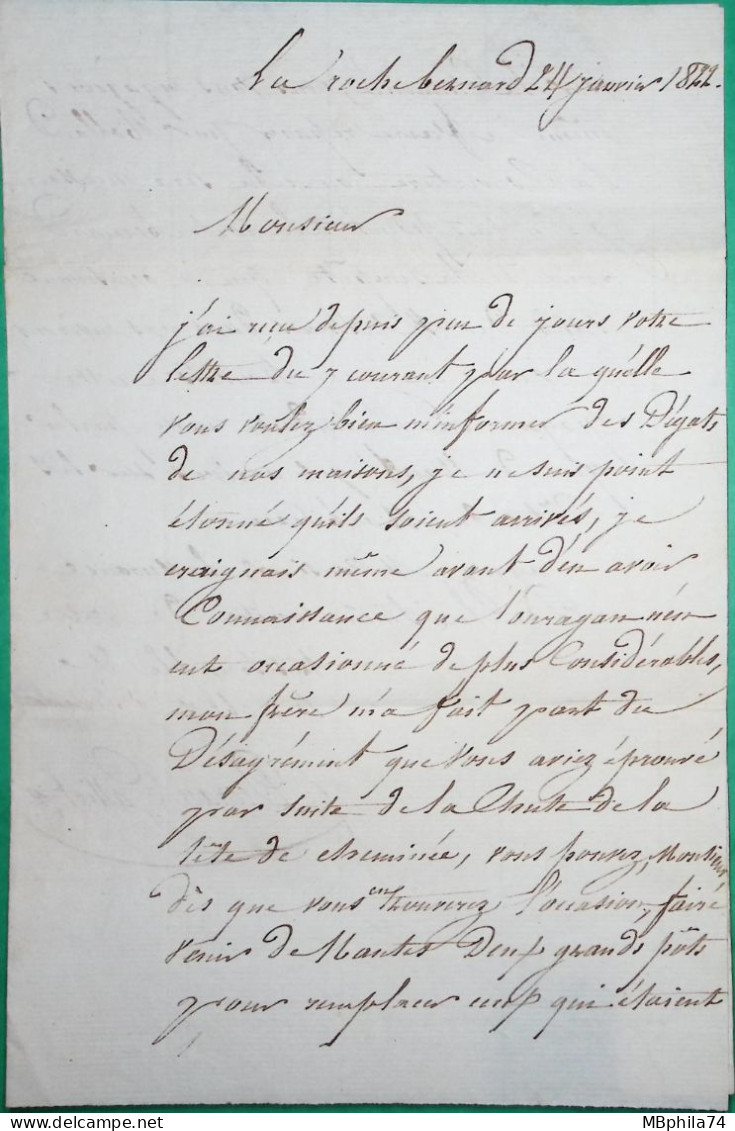 La roche bernard 24 janvier 1822.
Monsieur
j'ai reçu depuis peu de jours votre
lettre du 7 courant par la qu'elle
vous voulez bien m'informer des Dégats
de nos maisons, je ne suis point
étonné qu'ils soient arrivés, je
craignais même avant d'en avoir
Connaissance que l'ouragan n'en
eut occasionné de plus Considérables,
mon frère m'a fait part du
Désagrément que vous aviez éprouvé
par suite de la Chute de la
tête de cheminée, vous pouvez, Monsieur
dès que vous en trouverez l'occasion, faire
venir de Nantes Deux grands pots
pour remplacer ceux qui étaient
MBphila74